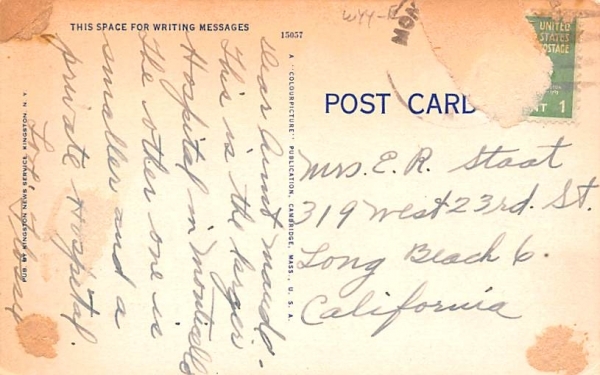 THIS SPACE FOR WRITING MESSAGES
15057
W44-
MON
UNITED
STATES
POSTAGE
1
POST CARD
Dear Aunt Maud.
This is the larger
Hospital in Monticello
The other one is
smaller and a
private Hospital.
PUB. BY KINGSTON NEWS SERVICE, KINGSTON, N. Y.
A "COLOURPICTURE" PUBLICATION, CAMBRIDGE, MASS., U. S. A.
Mrs. E. R. Staat
319 West 23rd. St.
Long Beach 6.
California